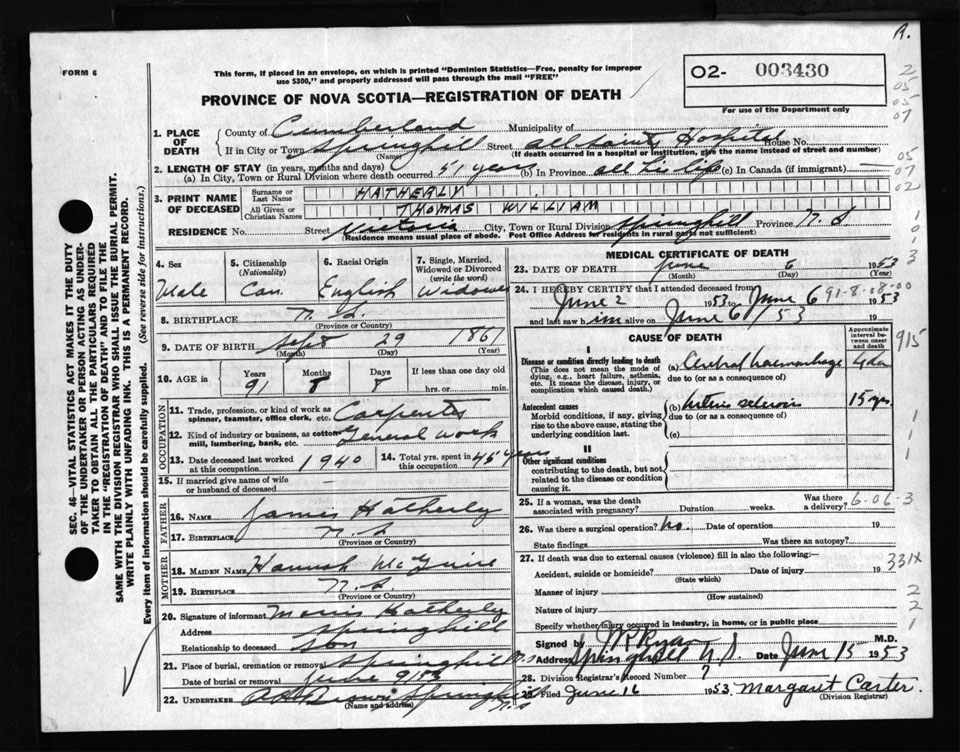 A.
FORM 6
This form, if placed in an envelope, on which is printed "Dominion Statistics—Free, penalty for improper
use $300," and properly addressed will pass through the mail "FREE"
O2- 003430
For use of the Department only
PROVINCE OF NOVA SCOTIA—REGISTRATION OF DEATH
1. PLACE OF DEATH County of Cumberland Municipality of
If in City or Town Springhill Street All Saints Hospital House No.
(Name) (If death occurred in a hospital or institution, give the name instead of street and number)
2. LENGTH OF STAY (in years, months and days)
(a) In City, Town or Rural Division where death occurred 51 years (b) In Province all his life (c) In Canada (if immigrant)
3. PRINT NAME OF DECEASED Surname or Last Name HATHERLY
All Given or Christian Names THOMAS WILLIAM
RESIDENCE No. Street Victoria City, Town or Rural Division Springhill Province N. S
(Residence means usual place of abode. Post Office Address for residents in rural parts not sufficient)
SEC. 46—VITAL STATISTICS ACT MAKES IT THE DUTY
OF THE UNDERTAKER OR PERSON ACTING AS UNDER-
TAKER TO OBTAIN ALL THE PARTICULARS REQUIRED
IN THE "REGISTRATION OF DEATH" AND TO FILE THE
SAME WITH THE DIVISION REGISTRAR WHO SHALL ISSUE THE BURIAL PERMIT.
WRITE PLAINLY WITH UNFADING INK. THIS IS A PERMANENT RECORD.
Every item of information should be carefully supplied. (See reverse side for instructions.)
4. Sex Male
5. Citizenship (Nationality) Can.
6. Racial Origin English
7. Single, Married, Widowed or Divorced (write the word) Widower
8. BIRTHPLACE N. S.
(Province or Country)
9. DATE OF BIRTH Sept 29 1861
(Month) (Day) (Year)
10. AGE in Years 91 Months 8 Days 8 If less than one day old
hrs. or min.
OCCUPATION
11. Trade, profession, or kind of work as spinner, teamster, office clerk, etc. Carpenter
12. Kind of industry or business, as cotton mill, lumbering, bank, etc. General work
13. Date deceased last worked at this occupation 1940
14. Total yrs. spent in this occupation 45 years
15. If married give name of wife or husband of deceased —
FATHER
16. NAME James Hatherly
17. BIRTHPLACE N. S
(Province or Country)
MOTHER
18. MAIDEN NAME Hannah McGuire
19. BIRTHPLACE N. S.
(Province or Country)
20. Signature of informant Morris Hatherly
Address Springhill
Relationship to deceased Son
21. Place of burial, cremation or removal Springhill N.S
Date of burial or removal June 9/53
22. UNDERTAKER Brown Springhill N.S
(Name and address)
MEDICAL CERTIFICATE OF DEATH
23. DATE OF DEATH June 6 1953
(Month) (Day) (Year)
24. I HEREBY CERTIFY that I attended deceased from
June 2 1953 to June 6 1953
91-8-08-00
and last saw him alive on June 6/53 19
CAUSE OF DEATH
Approximate interval between onset and death
I
Disease or condition directly leading to death (a) Cerebral haemorrhage 4 da
(This does not mean the mode of dying, e.g., heart failure, asthenia, etc. It means the disease, injury, or complication which caused death.)
due to (or as a consequence of)
Antecedent causes (b) Arterio sclerosis 15 yrs.
Morbid conditions, if any, giving rise to the above cause, stating the underlying condition last.
due to (or as a consequence of)
(c)
II
Other significant conditions
contributing to the death, but not related to the disease or condition causing it.
25. If a woman, was the death associated with pregnancy? Duration weeks. Was there a delivery? 6.06.3
26. Was there a surgical operation? No. Date of operation 19
State findings Was there an autopsy?
27. If death was due to external causes (violence) fill in also the following:—
Accident, suicide or homicide? Date of injury 19
(State which)
Manner of injury
(How sustained)
Nature of injury
Specify whether injury occurred in industry, in home, or in public place
Signed by M.D.
Address Springhill N.S. Date June 15 1953
28. Division Registrar's Record Number 7
29. Filed June 16 1953 Margaret Carter.
(Division Registrar)
2
05
05
07
05
07
02
1
0
1
3
915
1
1
1
331X
2
2
1